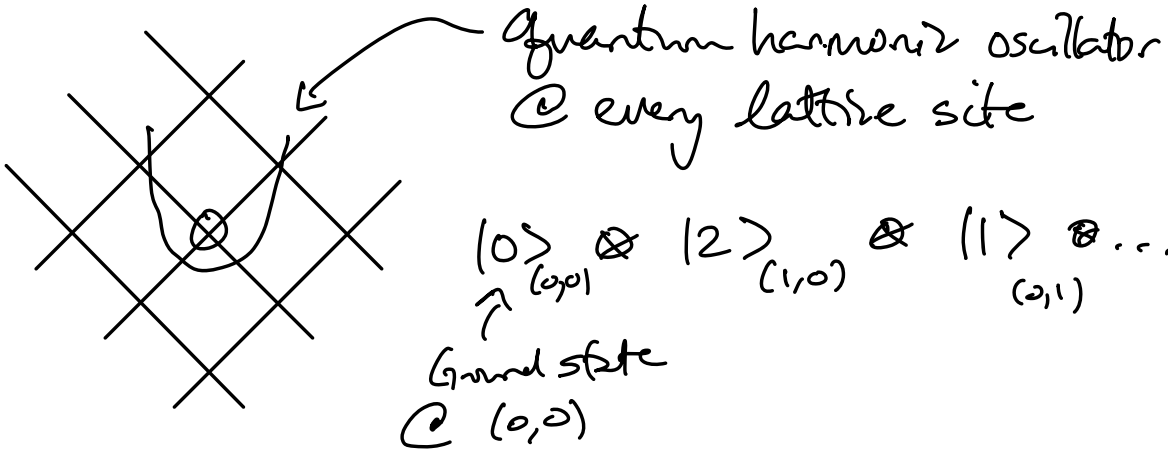 Quantum harmonic oscillator
@ every lattice site
|0⟩(0,0) ⊗ |2⟩(1,0) ⊗ |1⟩(0,1) ⊗ ...
Ground state
@ (0,0)